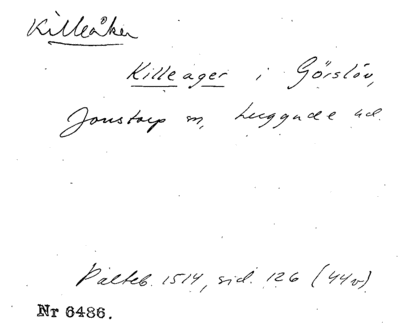 Killeåker
Killeager i Görslöv,
Jonstorp sn, Luggude hd.
Palteb. 1514, sid. 126 (44v)
Nr 6486.